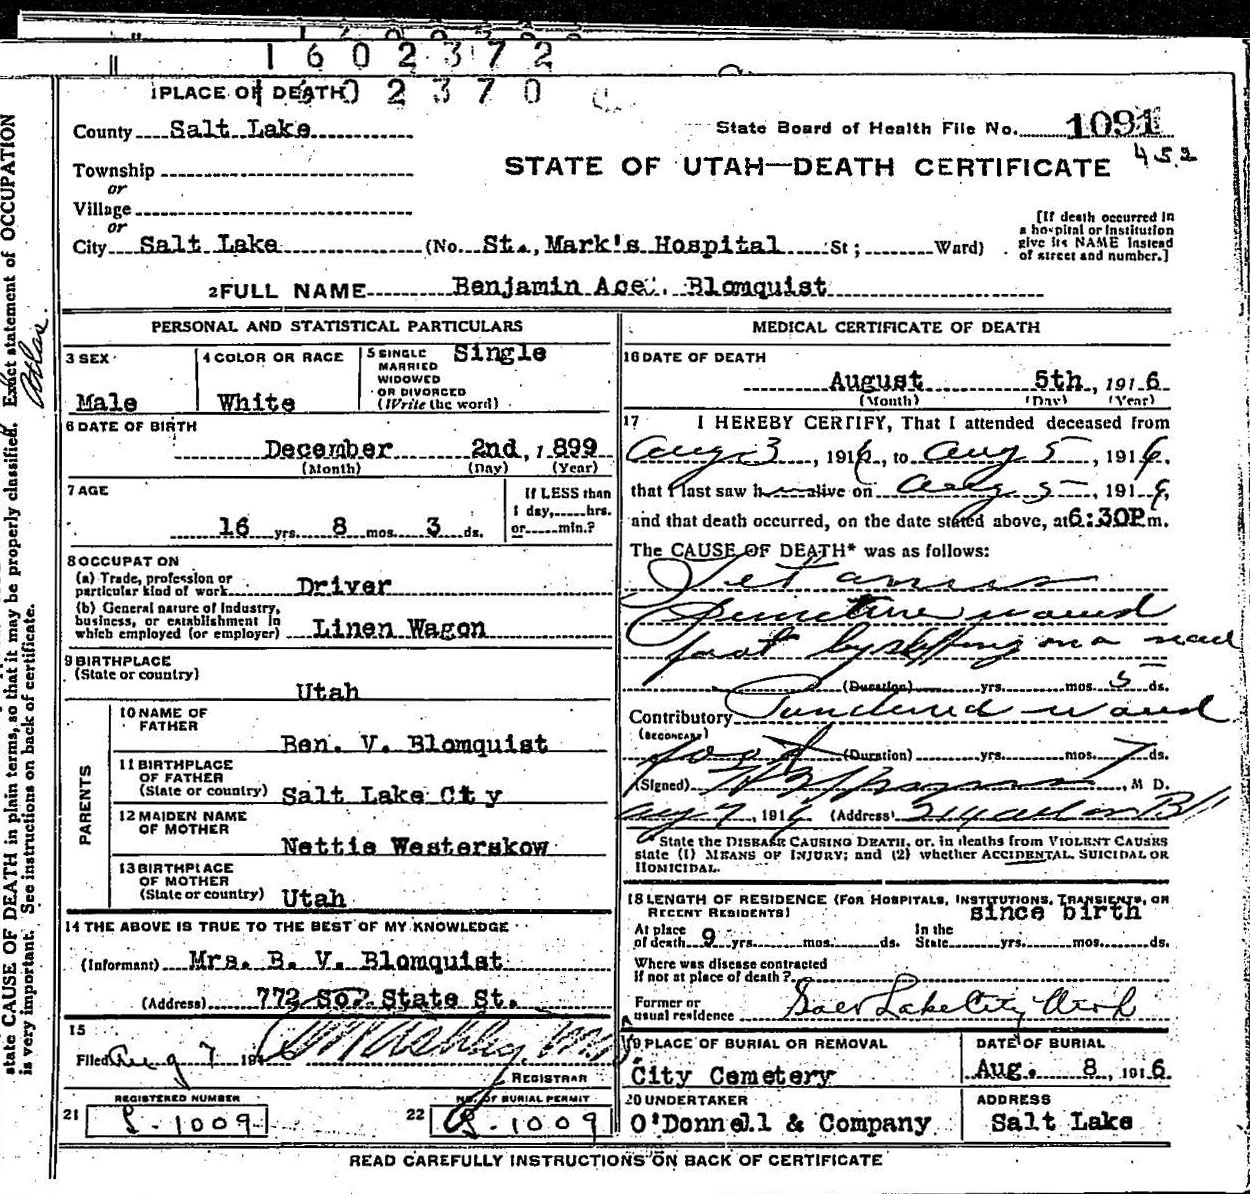 1602372
1PLACE OF DEATH
1602370
County Salt Lake
State Board of Health File No. 1091
452
Township
or
Village
or
STATE OF UTAH—DEATH CERTIFICATE
City Salt Lake (No. St., Mark's Hospital St; Ward)
[If death occurred in
a hospital or institution
give its NAME instead
of street and number.]
2FULL NAME Benjamin Ace. Blomquist
PERSONAL AND STATISTICAL PARTICULARS
3 SEX
Male
4 COLOR OR RACE
White
5 SINGLE
MARRIED
WIDOWED
OR DIVORCED
(Write the word)
Single
6 DATE OF BIRTH
December 2nd, 1899
(Month) (Day) (Year)
7 AGE
16 yrs. 8 mos. 3 ds.
If LESS than
1 day, hrs.
or min.?
8 OCCUPATON
(a) Trade, profession or
particular kind of work Driver
(b) General nature of Industry,
business, or establishment in
which employed (or employer) Linen Wagon
9 BIRTHPLACE
(State or country)
Utah
PARENTS
10 NAME OF
FATHER
Ben. V. Blomquist
11 BIRTHPLACE
OF FATHER
(State or country) Salt Lake City
12 MAIDEN NAME
OF MOTHER
Nettie Westerskow
13 BIRTHPLACE
OF MOTHER
(State or country) Utah
14 THE ABOVE IS TRUE TO THE BEST OF MY KNOWLEDGE
(Informant) Mrs. B. V. Blomquist
(Address) 772 So. State St.
15
Filed Aug 7 1916
REGISTRAR
REGISTERED NUMBER
21 1009
NO. OF BURIAL PERMIT
22 1009
MEDICAL CERTIFICATE OF DEATH
16 DATE OF DEATH
August 5th, 1916
(Month) (Day) (Year)
17 I HEREBY CERTIFY, That I attended deceased from
Aug 3, 1916, to Aug 5, 1916.
that I last saw h alive on Aug 5, 1916,
and that death occurred, on the date stated above, at 6:30P m.
The CAUSE OF DEATH* was as follows:
Tetanus
Puncture wound
foot by stepping on a nail
(Duration) yrs. mos. 5 ds.
Contributory Punctured wound
(SECONDARY)
foot (Duration) yrs. mos. 7 ds.
(Signed) M D.
Aug 7, 1916 (Address)
* State the DISEASE CAUSING DEATH, or, in deaths from VIOLENT CAUSES
state (1) MEANS OF INJURY; and (2) whether ACCIDENTAL, SUICIDAL OR
HOMICIDAL.
18 LENGTH OF RESIDENCE (FOR HOSPITALS, INSTITUTIONS, TRANSIENTS, OR
RECENT RESIDENTS) since birth
At place
of death 9 yrs. mos. ds.
In the
State yrs. mos. ds.
Where was disease contracted
if not at place of death?
Former or
usual residence Salt Lake City Utah
19 PLACE OF BURIAL OR REMOVAL
City Cemetery
DATE OF BURIAL
Aug. 8, 1916.
20 UNDERTAKER
O'Donnell & Company
ADDRESS
Salt Lake
READ CAREFULLY INSTRUCTIONS ON BACK OF CERTIFICATE
state CAUSE OF DEATH in plain terms, so that it may be properly classified. Exact statement of OCCUPATION
is very important. See instructions on back of certificate.